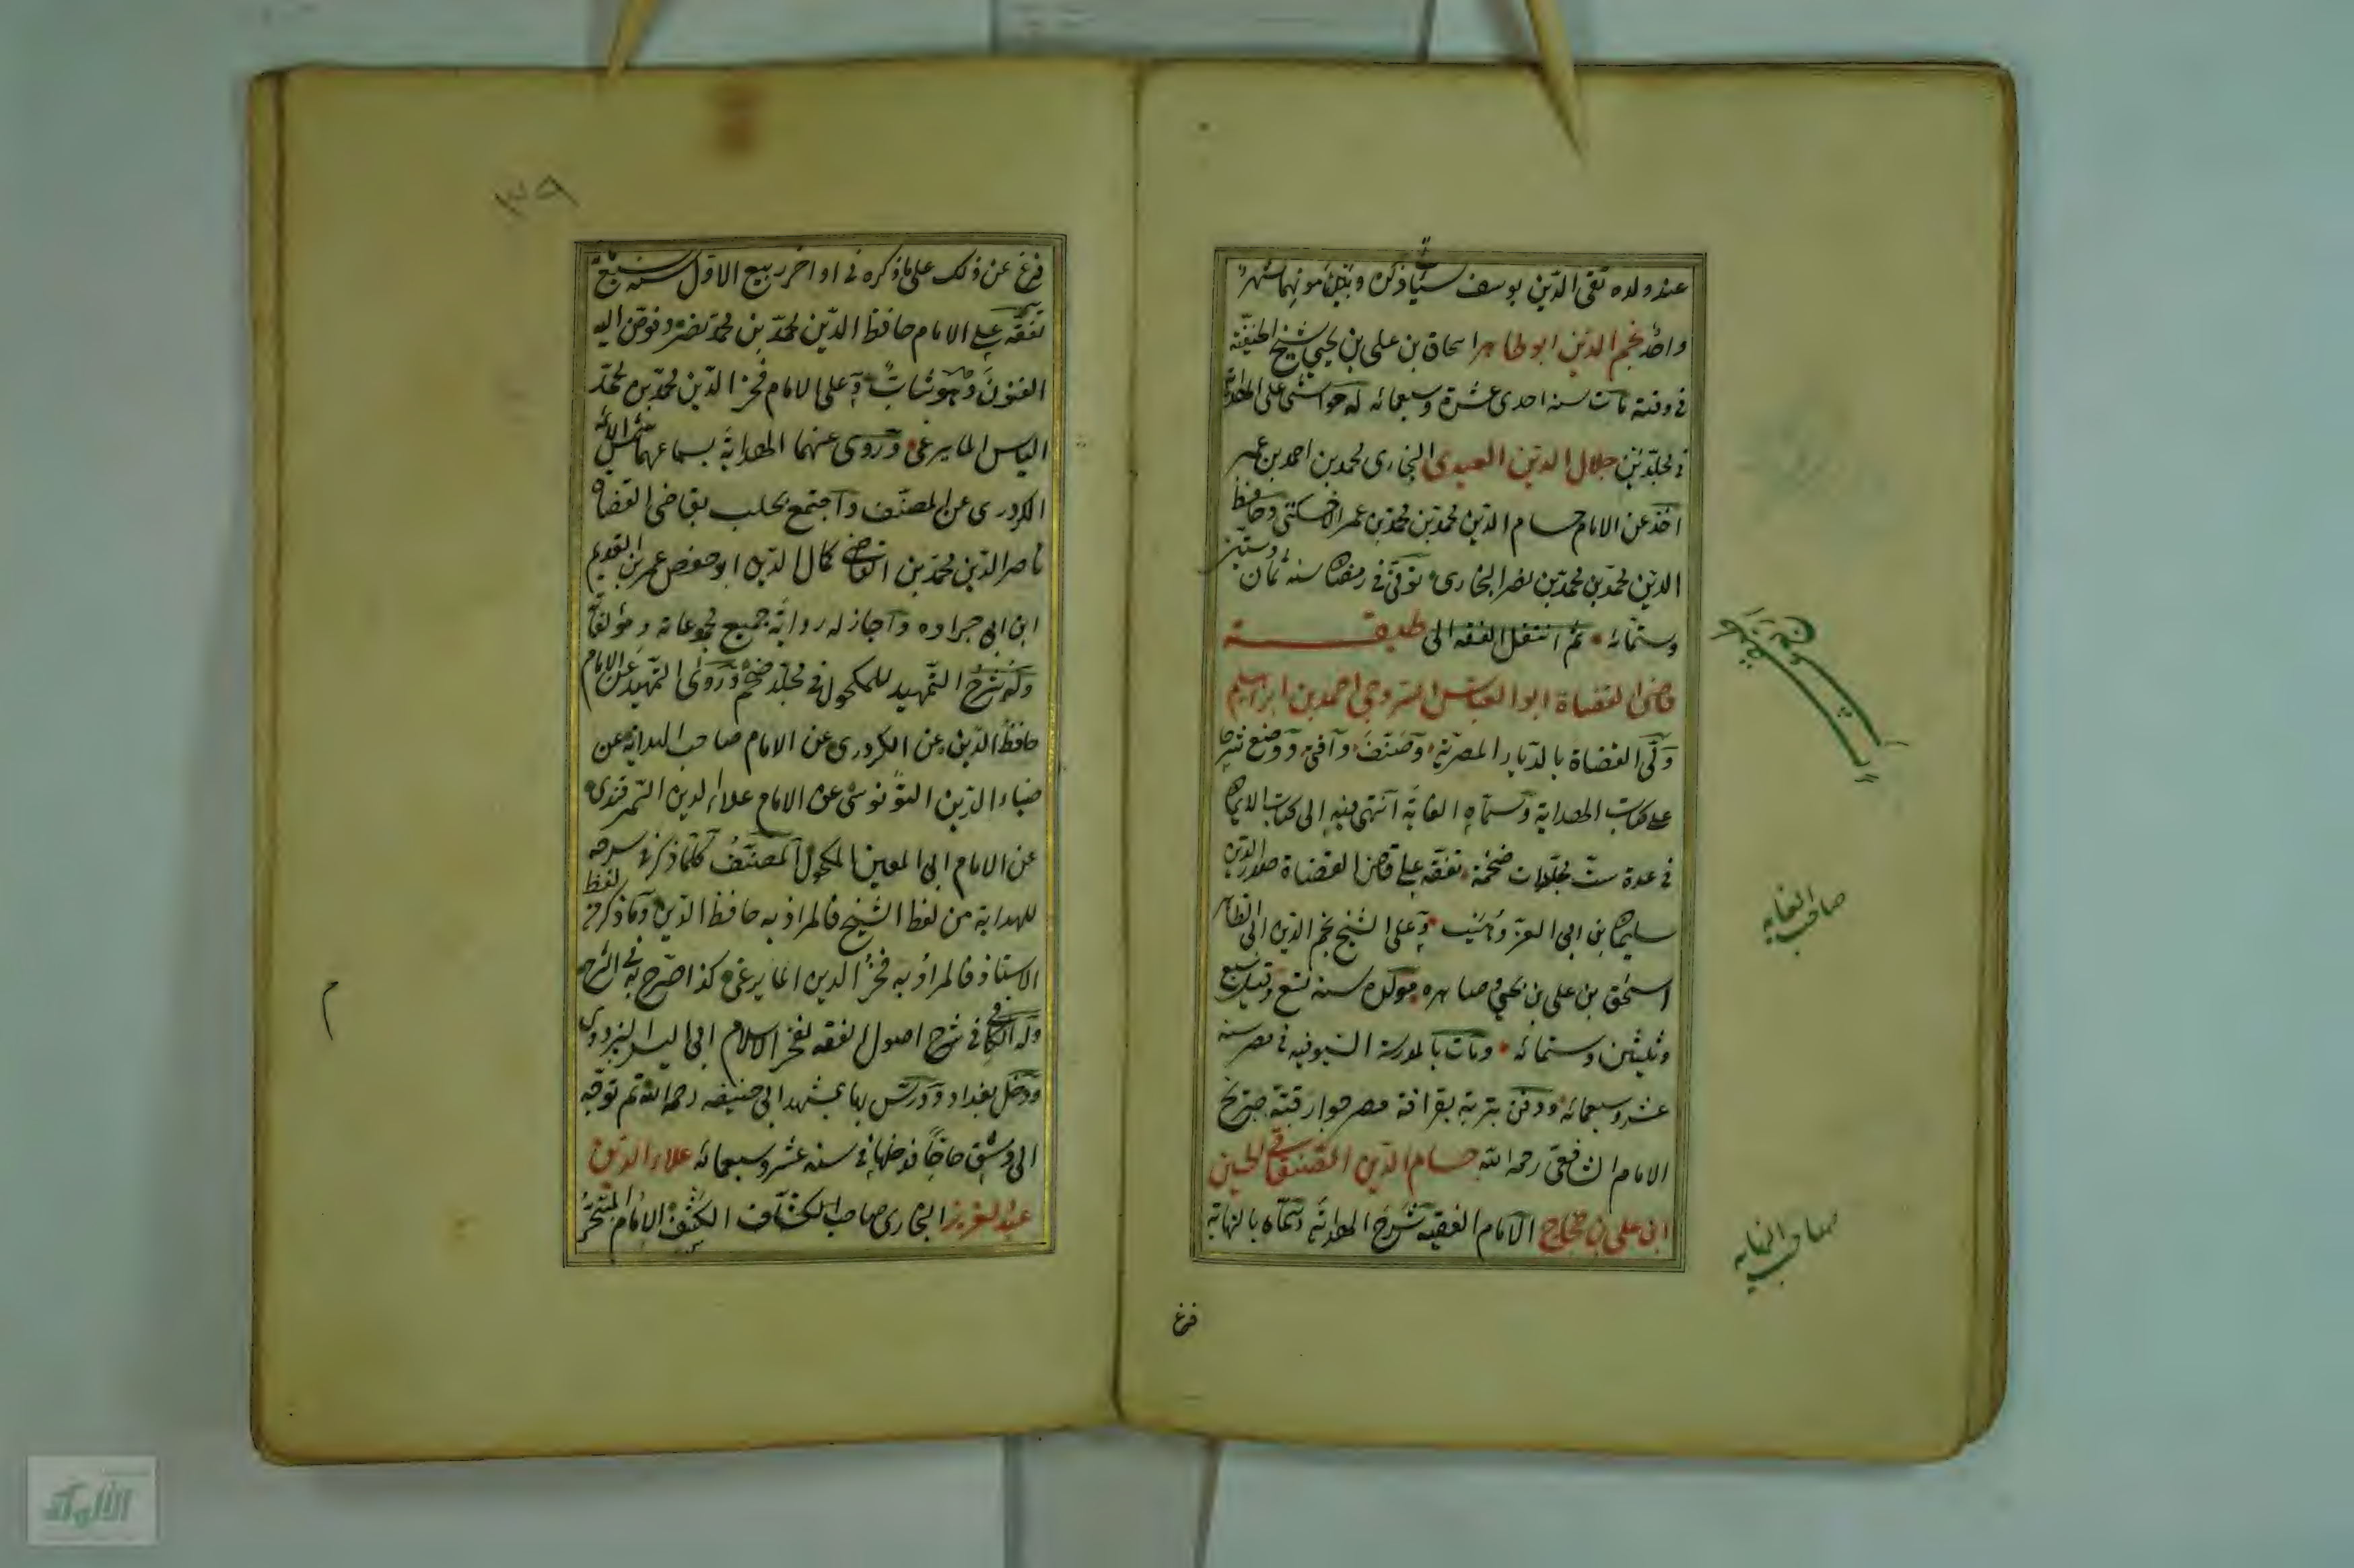 عند ولده تقى الدين يوسف سيأ ذكره وبين موتهما شهر
واحد نجم الدين ابو طاهر اسحاق بن على بن يحيى شيخ الحنفية
فى وقته مات سنه احدى عشرة وسبعمائه له حواشى على الهداية
فى مجلدين جلال الدين العيدى البخارى محمد بن احمد بن عمر
اخذ عن الامام حسام الدين محمد بن محمد بن عمر الاخسكتى وحافظ
الدين محمد بن محمد بن نصر البخارى توفى فى رمضان سنه ثمان وستين
وستمائه ثم انتقل الفقه الى طبقــــة
قاضى القضاة ابو العباس السروجى احمد بن ابراهيم
ولى القضاة بالديار المصرية وصنف وآفى ووضع شرحا
على كتاب الهداية وسماه الغاية انتهى فيه الى كتاب الايمان
فى عدة ست مجلدات ضخمة تفقه على قاضى القضاة صدر الدين
سليمان بن ابى العز وهيب وعلى الشيخ نجم الدين ابى الطاهر
اسحق بن على بن يحيى وصاهره مولده سنه تسع وقيل سبع
وثلثين وستمائه ومات بالمدرسة السيوفيه فى مصر سنه
عشر وسبعمائه ودفن بتربته بقرافة مصر جوار قبته ضريح
الامام الشافعى رحمه الله حسام الدين السغناقى الحسين
ابن على بن حجاج الامام الفقيه شرح الهداية وسماه بالنهاية
فرغ
صاحب الغايه
صاحب النهايه
٣٩
فرغ عن ذلك على ما ذكره فى اواخر ربيع الاول سنه سبعمائة
تفقه على الامام حافظ الدين محمد بن محمد بن نصر وفوض اليه
الفتوى وهو شاب وعلى الامام فخر الدين محمد بن محمد
الياس المايمرغى وروى عنهما الهداية بسماعهما شمس الائمه
الكردرى عن المصنف واجتمع بحلب بقاضى القضاة
ناصر الدين محمد بن القاضى كمال الدين ابو حفص عمر بن العديم
ابن ابى جراده واجاز له رواية جميع مجموعاته ومؤلفاته
وله شرح التمهيد للمكحولى فى مجلد ضخم وروى التمهيد عن الامام
حافظ الدين عن الكردرى عن الامام صاحب الهداية عن
ضياء الدين النونوسى عن الامام علاء الدين السمرقندى
عن الامام ابى المعين المكحول المصنف كلما ذكر فى شرحه
للهداية من لفظ الشيخ فالمراد به حافظ الدين وما ذكر فيه لفظ
الاستاذ فالمراد به فخر الدين المايمرغى كذا صرح به فى الشرح
وله الكافى فى شرح اصول الفقه لفخر الاسلام ابى اليسر البزدوى
ودخل بغداد ودرس بها بمشهد ابى حنيفه رحمه الله ثم توجه
الى دمشق حاجا فدخلها فى سنه عشر وسبعمائه علاء الدين
عبد العزيز البخارى صاحب الكشاف الكشف الامام المتبحر
م